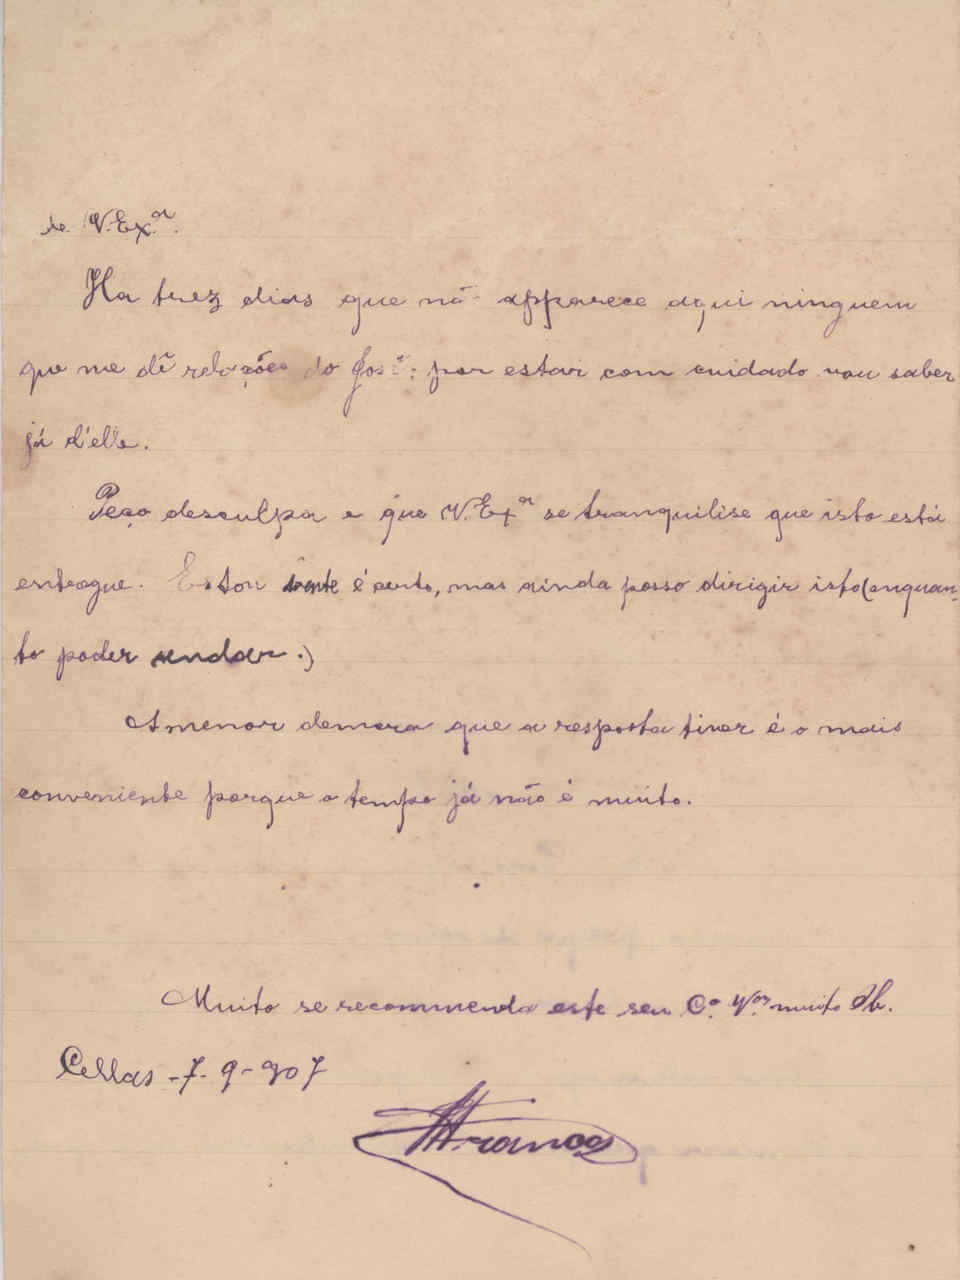 de V. Ex.ª.
Ha trez dias que nã apparece aqui ninguem
que me dê relações do José: por estar com cuidado vou saber
já d'elle.
Peço desculpa e que V. Exª se tranquilise que isto está
entregue. Estou doente é certo, mas ainda posso dirigir isto (enquan-
to poder andar.)
A menor demora que a resposta tiver é o mais
conveniente porque o tempo já não é muito.
Muito se recommenda este seu C.º V.ºr muito Ob.
Cellas - 7 - 9 - 907
Franco